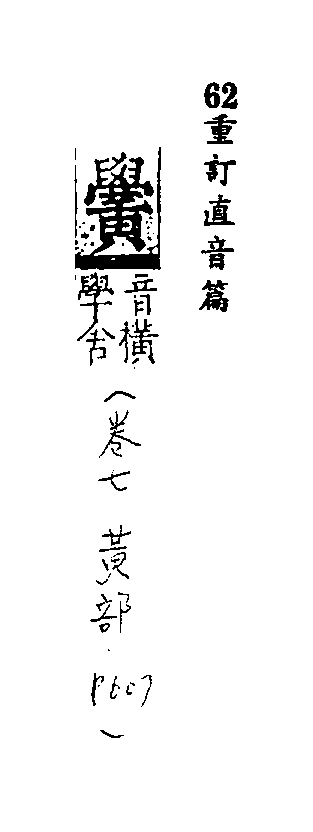 62重訂直音篇
黌
音橫
學舍
(卷七 黃部.P607)